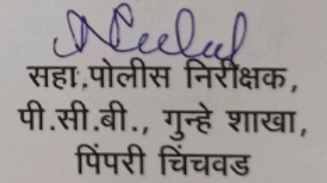 सहा.पोलीस निरीक्षक,
पी.सी.बी., गुन्हे शाखा,
पिंपरी चिंचवड